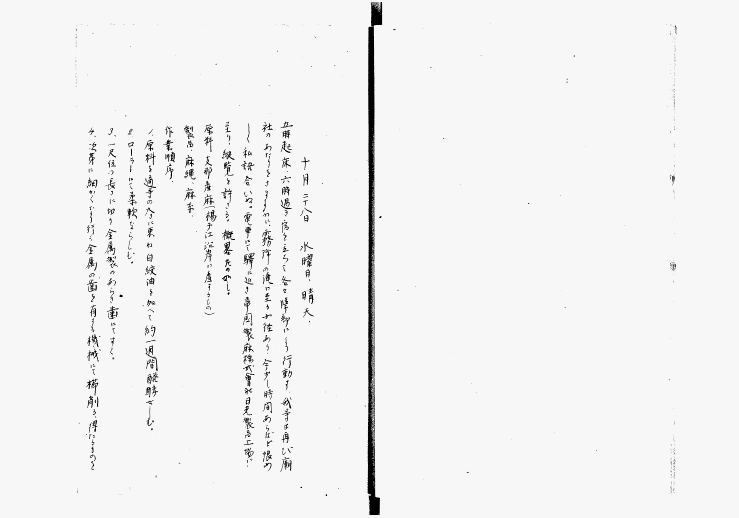 十月二十八日 水曜日 晴天.
五時起床、六時過ぎ宿を立ちて各々隊部にて行動す 我等は再び廟
社のあたりをさまよひ、霧降の滝に至る 今少し時間あらばと恨め
しく私語合いぬ。電車にて驛に近き帝国製麻株式會社日光製品工場に
至り、縦覧を許さる。概畧左の如し。
原料 支那産麻(揚子江沿岸に産するもの)
製品、麻縄、麻糸、
作業順序、
1、原料を適等の大さに束ね白絞油を加へて約一週間醗酵せしむ。
2、ローラーにて柔軟ならしむ。
3、一尺位の長さに切り金属製のあらき歯にてすく。
4、次第に細かくなり行く金属の歯を有する機械にて梳削り、得たるものを